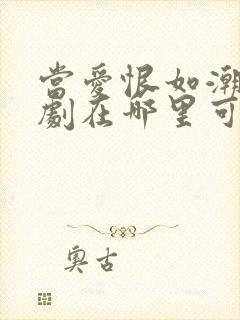 當愛恨如潮
劇在哪里可
奧古